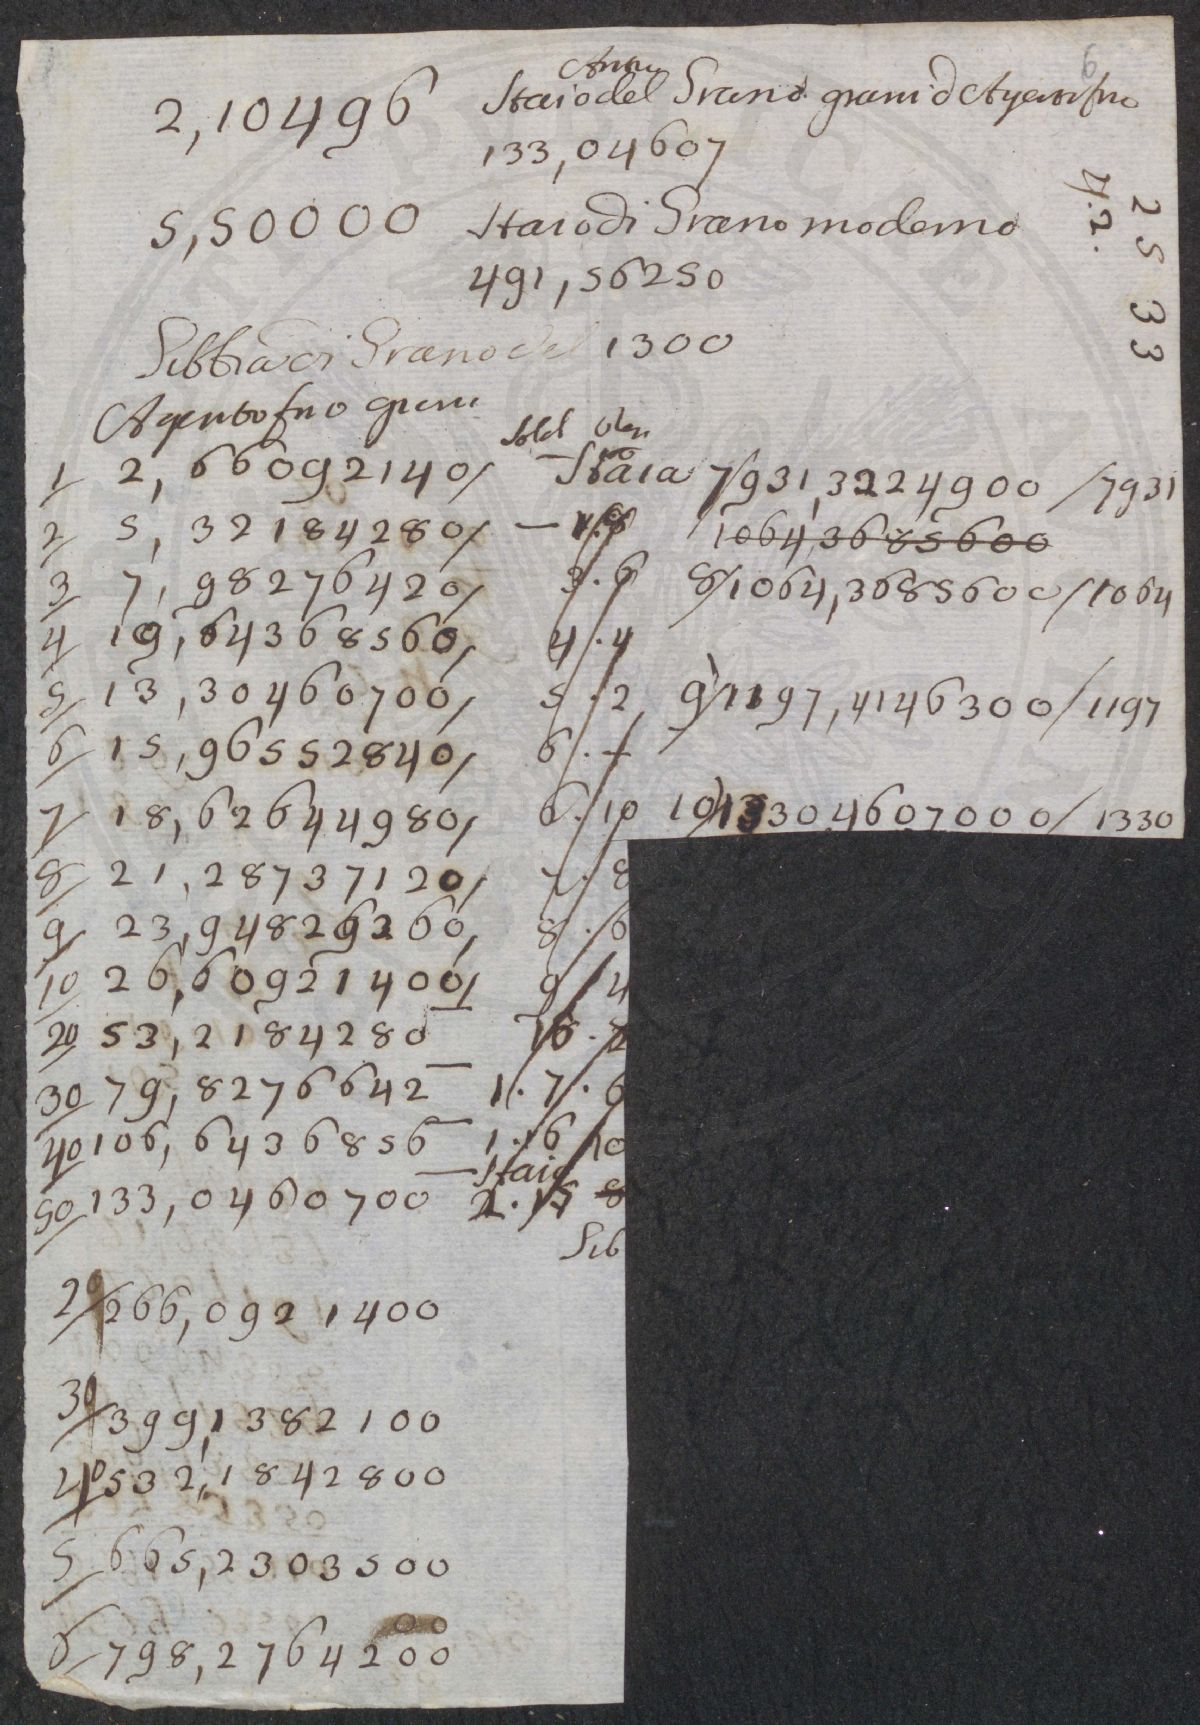 6
Anni
2,10496 Staio del Grano grani d Argento fino
133,04607
5,50000 Staio di Grano moderno
491,56250
4.2.
2533
Libbra di Grano del 1300
Argento fino grani
Sold den
1/ 2,66092140/ — Staia 7/931,3224900 /7931
2/ 5,32184280/ — 1.8 1064,3685600
3/ 7,98276420/ 3.6 8/1064,3685600/1064
4/ 10,64368560/ 4.4
5/ 13,30460700/ 5.2 9/1197,4146300/1197
6/ 15,96552840/ 6.—
7/ 18,62644980/ 6.10 10/1330,4607000/1330
8/ 21,28737120/ 7.8
9/ 23,94829260/ 8.6
10/ 26,60921400/ 9/4
20/ 53,2184280 — 18.8
30/ 79,8276642 — 1.7.6
40/ 106,6436856 — 1.16 10
50/ 133,0460700 — Staio 2.15 8
Lib
20/ 266,0921400
30/ 399,1382100
40/ 532,1842800
5/ 665,2303500
00
6/ 798,2764200